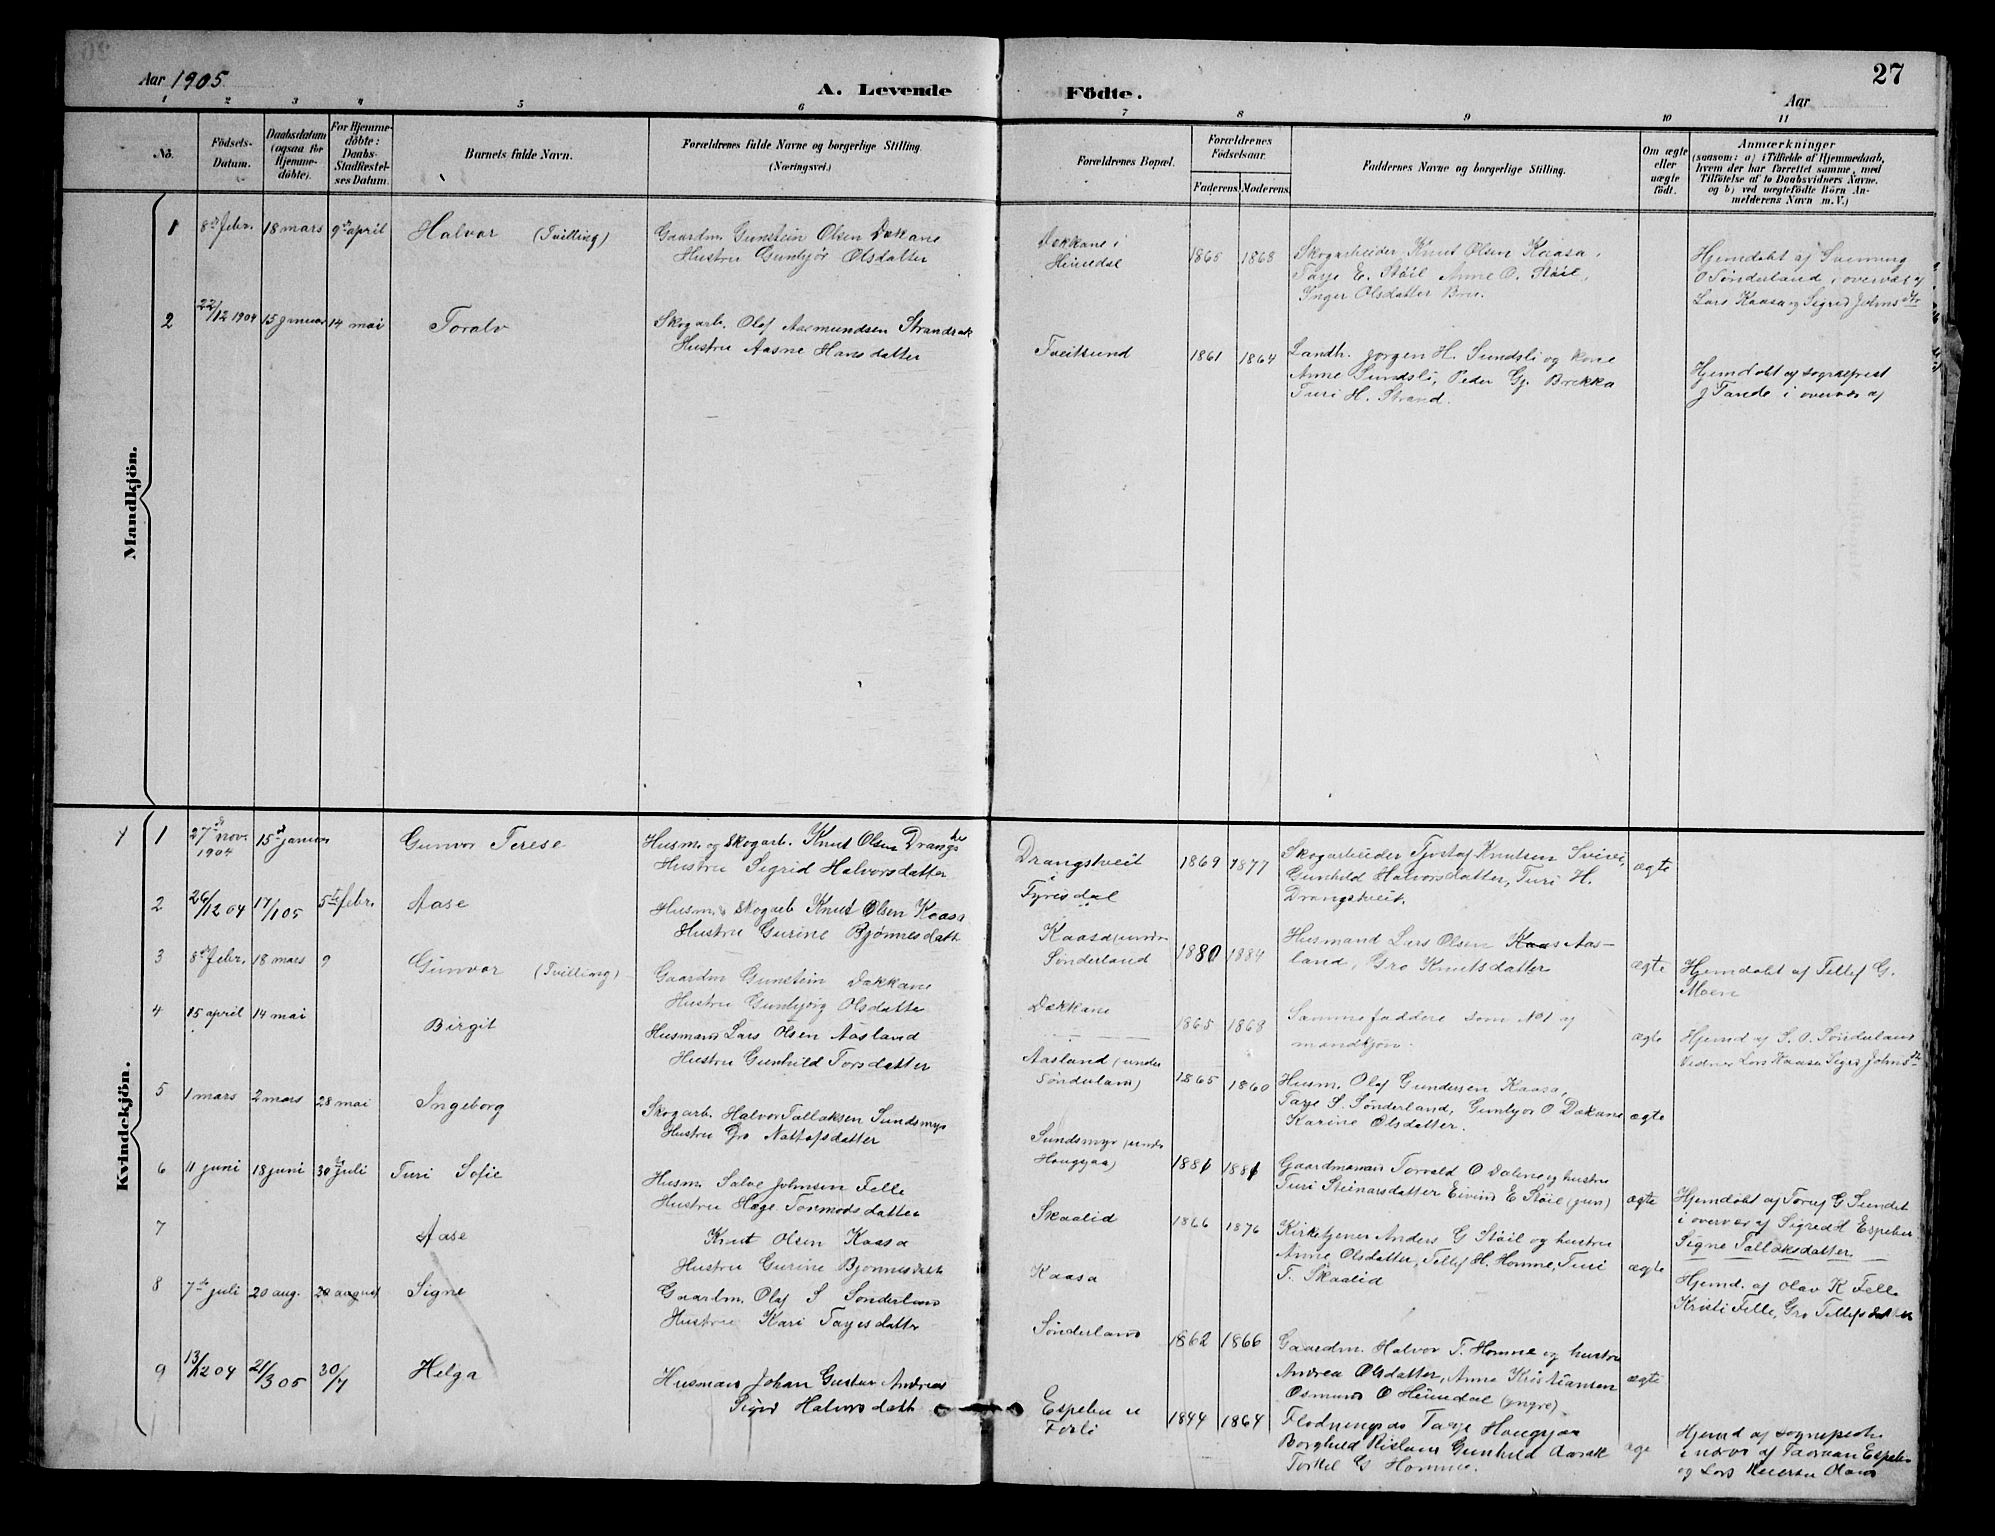 Aar 1905
A. Levende
Födte.
Aar
27
1 2 3 4 5 6 7 8 9 10 11
No.
Födsels-Datum.
Daabsdatum (ogsaa for Hjemme-döbte).
For Hjemme-döbte: Daabs-Stadfæstel-ses Datum.
Barnets fulde Navn.
Forældrenes fulde Navne og borgerlige Stilling.
(Næringsvei.)
Forældrenes Bopæl.
Forældrenes Födselsaar.
Faderens. Moderens.
Faddernes Navne og borgerlige Stilling.
Om ægte eller uægte födt.
Anmærkninger
(saasom: a) i Tilfælde af Hjemmedaab,
hvem der har forrettet samme, med
Tilföielse af to Daabsvidners Navne,
og b) ved uægtefödte Börn An-
melderens Navn m. V.)
Mandkjön.
1 8de febr. 18 mars 9de april Halvor (Tvilling) Gaardm. Gunstein Olsen Dakane
Hustru Gunbjør Olsdatter
Dækkane i
Heimdal
1865 1868
Skogarbeider Knut Olsen Kaasa,
Taje E. Støil Anne O. Støil,
Inger Olsdatter Bru.
Hjemdøbt af Svenung
O Sønderland i overvær af
Lars Kaasa og Sigrid Johnsdtr
2 22/12 1904 15 januar 14 mai Toralv Skogarb. Olaf Aasmundsen
Hustru Aasne Hansdatter
Tveitsund
1861 1864
Landh. Jørgen H. Sundsli og kone
Anne Sundsli, Peder Gj. Brekka
Turi H. Strand.
Hjemdøbt af sogneprest
J Tande i overvær af
Kvindekjön.
1 27de nov. 1904 15de januar Gunvor Terese Husm. og skogarb. Knut Olsen
Hustru Sigrid Halvorsdatter
Drangstveit
i
Fyrisdal
1869 1877
Skogarbeider Tjostaf Knutsen
Gunhild Halvorsdatter, Turi H.
Drangstveit.
ægte
2 26/12 04 17/1 05 5te febr. Aase Husm. Skogarb Knut Olsen Kaasa
Hustru Gurine Bjønnesdatt.
Kaasa (under
Sønderland
1880 1884
Husmand Lars Olsen Aas-
land, Gro Knutsdatter
ægte
Hjemdøbt af Tellef G.
Moen
3 8de febr. 18 mars 9 Gunvor (Tvilling) Gaardm Gunstein Dakkane
Hustru Gunbjørg Olsdatter
Dækkane
1865 1868
Samme faddere som No 1 af
mandkjøn.
ægte
Hjemd af S. O. Sønderland
Vidner Lars Kaasa Sigrid Johnsdtr
4 15 april 14 mai Birgit Husmand Lars Olsen Aasland
Hustru Gunhild Torsdatter
Aasland (under
Sønderland)
1865 1860
Husm. Olaf Gundersen Kaasa,
Taje S. Sønderland, Gunbjør O Dakane
Karine Olsdatter.
ægte
5 1 mars 2 mars 28 mai Ingeborg Skogarb. Halvor Tallaksen Sundsmyr
Hustru Gro
Sundsmyr (under
Haugsjaa)
1881 1881
Gaardmand Torvald O Dalene og hustru
Turi Steinarsdatter Eivind E Støil (jun)
ægte
Hjemdøbt af Torief G Sundet
i overvær af Sigrid H Espelien
Signe Tallaksdatter
6 11 juni 18 juni 30te juli Turi Sofie Husm. Salve Johnsen Felle
Hustru Hæge Tormodsdatter
Skaalid
1866 1876
Kirketjener Anders G Støil og hustru
Anne Olsdatter, Tellef H. Homme, Turi
T. Skaalid
ægte
Hjemd. af Olav K Felle
Kristi Felle, Gro Tellefsdatter
7 Aase Knut Olsen Kaasa
Hustru Gurine Bjønnesdatt
Kaasa
8 7de juli 20 aug. 20 august Signe Gaardm. Olaf S Sønderland
Hustru Kari Tajesdatter
Sønderland
1862 1866
Gaardm. Halvor T. Homme og hustru
Andrea Olsdatter, Anne Kristiansen
Osmund O Heimdal (yngre)
ægte
9 13/12 04 21/3 05 30/7 Helga Husmand Johan Gustav Andreas
Sigrid Halvorsdatt
Espelien
1844 1864
Taje Haugsjaa
Borghild Gunhild
Torkil G Homme.
Hjemd af sogneprest
i nærvær af Espelien
og Lars